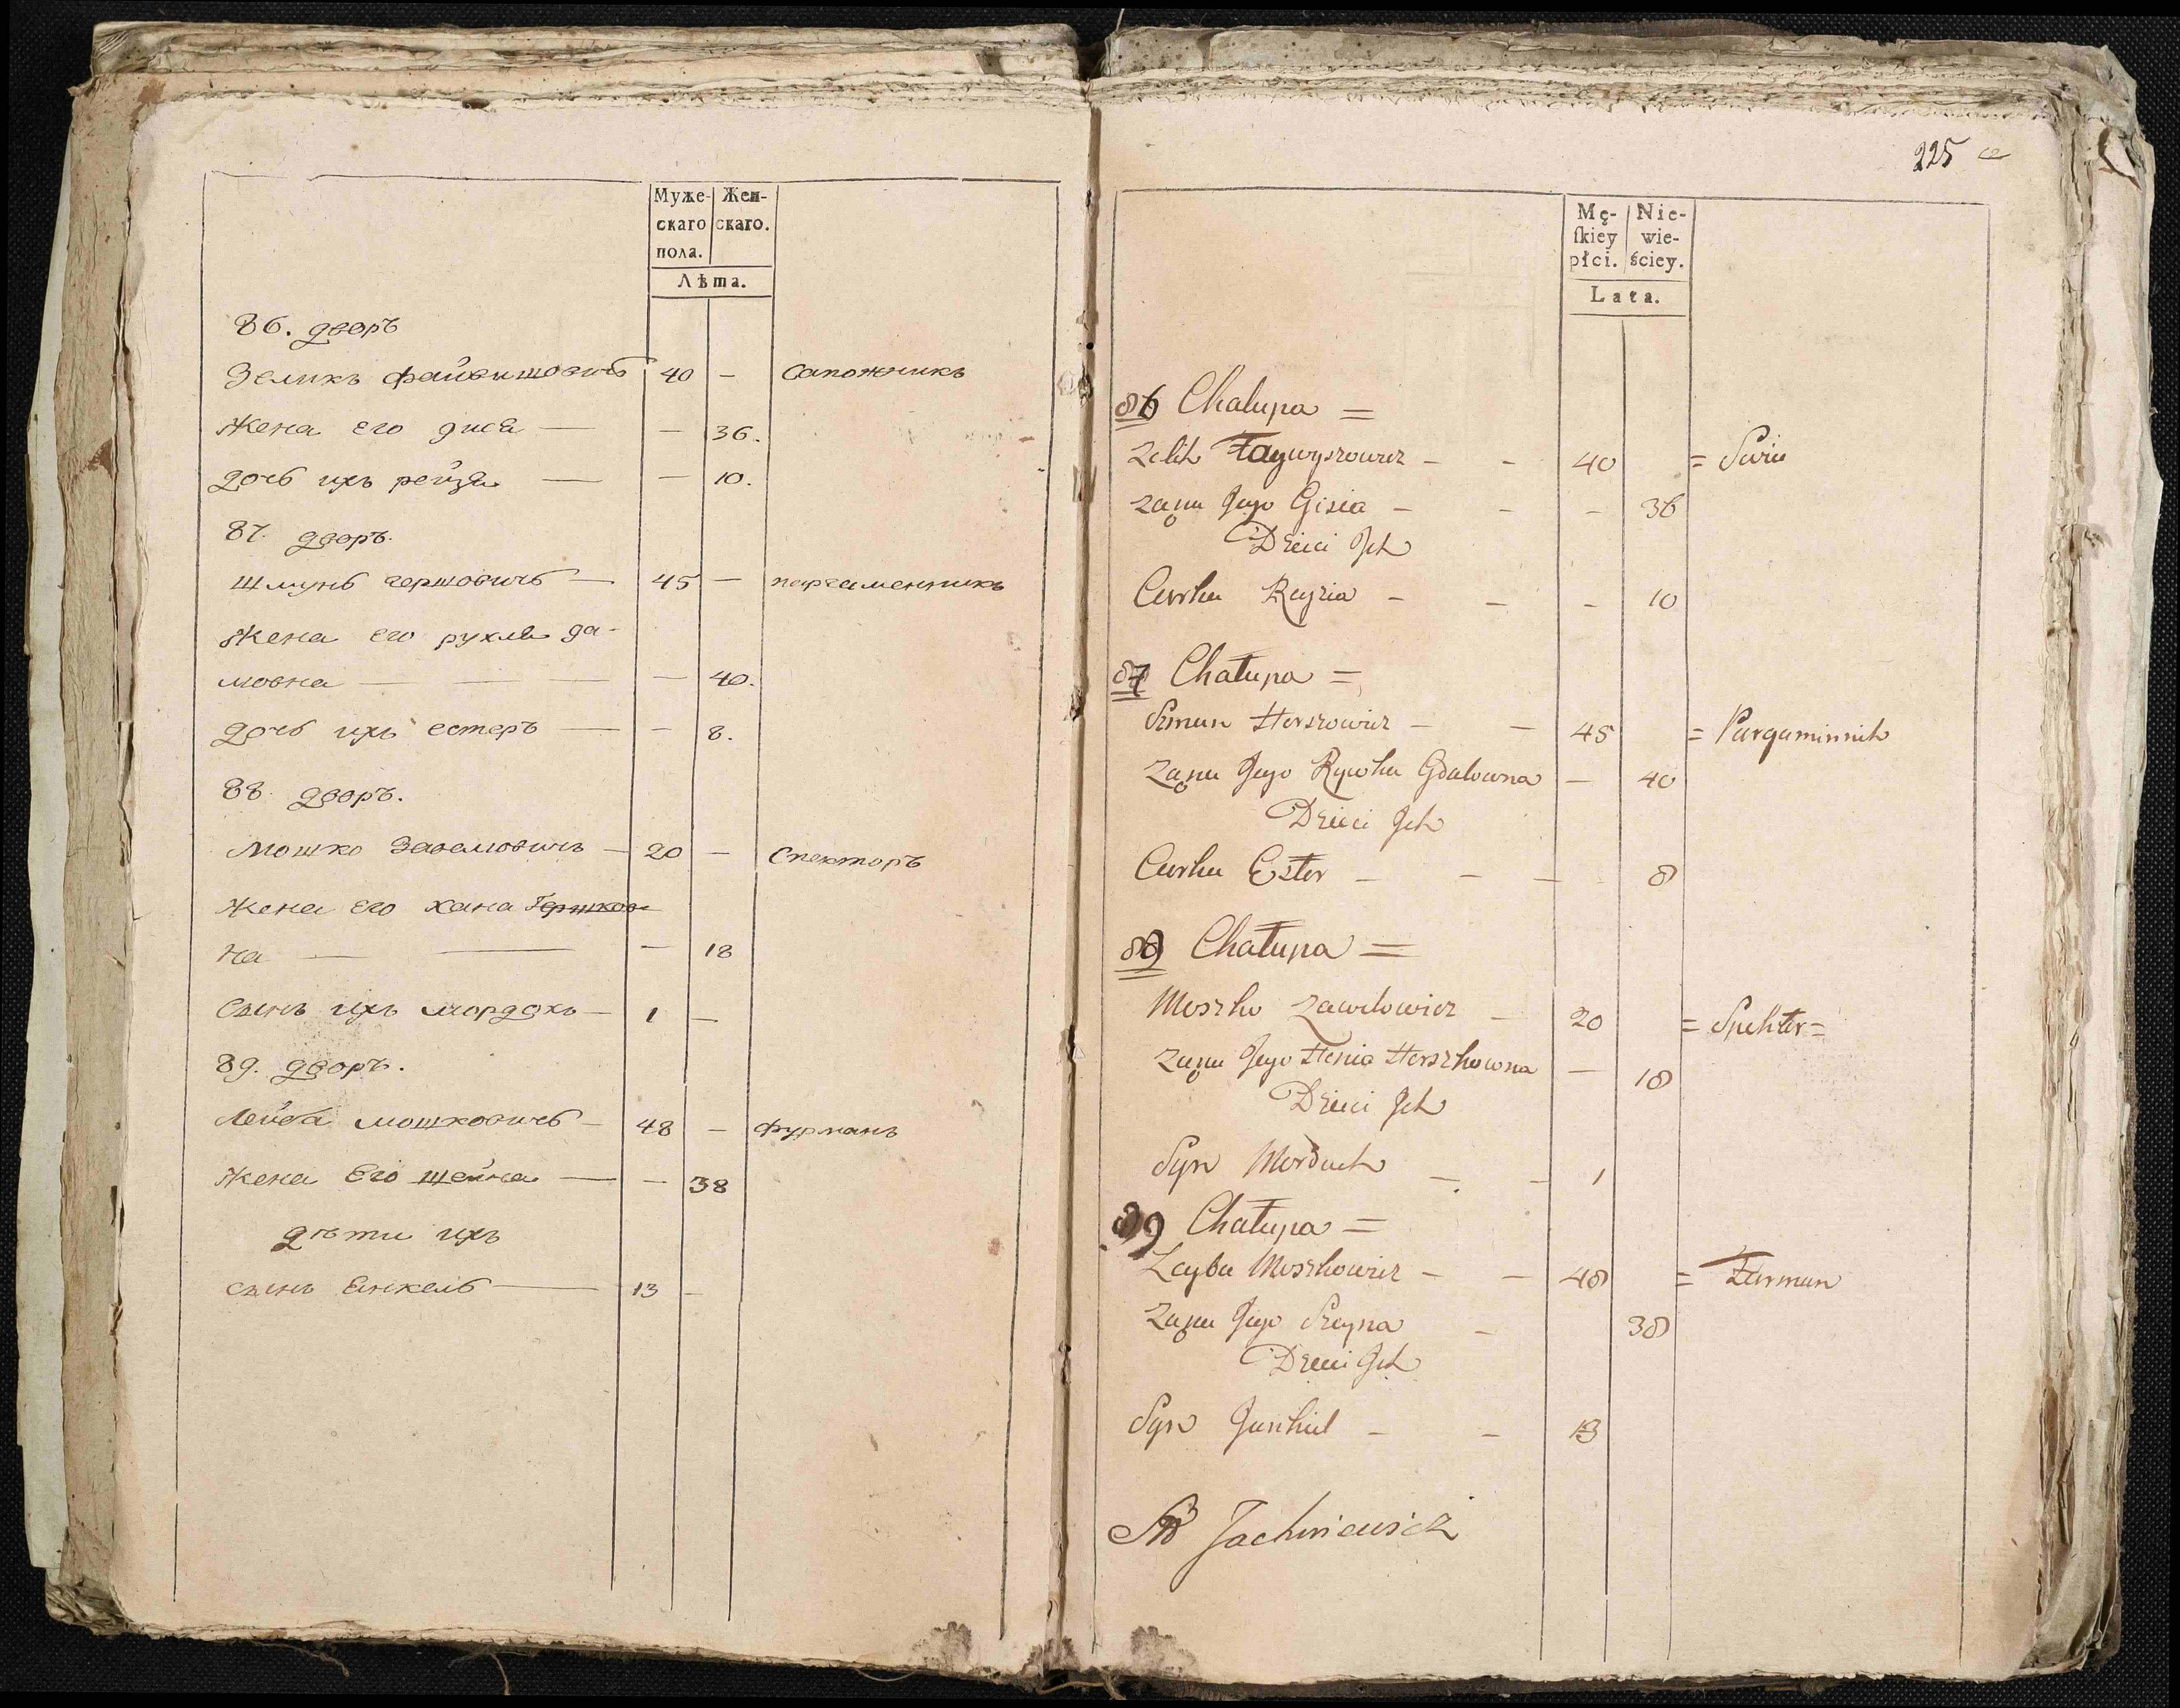 Муже- Жен-
скаго скаго.
пола.
Лѣта.
86. дворъ
Зеликъ файвишовичъ 40 — Сапожникъ
Жена его — — 36.
дочь ихъ рейзя — — 10.
87. дворъ.
Шмунь гершовичь — 45 — паргаменникъ
Жена его рухля да-
мовна — — — — 40.
дочь ихъ естеръ — — 8.
88. дворъ.
Мошко Завелювичъ — 20 — Спекторъ
Жена его хана Гершков
на — — — 18
Сынъ ихъ мордохъ — 1 —
89. дворъ.
Лейба мошковичь — 48 — фурманъ
Жена Его шейна — — 38
дѣти ихъ
сынъ Енкель — 13 —
225
Mę- Nie-
ſkiey wie-
płci. ściey.
Lata.
86 Chalupa =
Zelik Faywyszowicz - - 40 =
Zona Jego Gisia - - - 36
Dzieci Ich
Curka Reyzia - - - 10
87 Chałupa =
Szmun Herszowicz - - 45 = Pargaminnik
Zona Jego Rywka Gdalowna - 40
Dzieci Ich
Curka Ester - - - 8
88 Chałupa =
Moszko Zawelowicz - 20 = Spekter =
Zona Jego Henia Herszkowna — 18
Dzieci Ich
Syn Morduch - - 1
89 Chałupa =
Leyba Moszkowicz - - 48 = Furman
Zona Jego Szeyna - 38
Dzieci Ich
Syn Jankiel - - 13
Jachniewicz